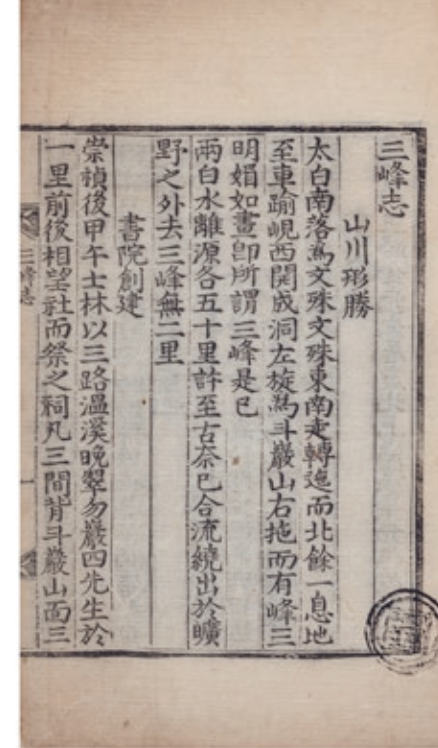 三峰志
山川形勝
太白南落爲文殊文殊東南走轉迤而北餘一息地
至車踰峴西開成洞左旋爲斗巖山右拖而有峰三
明媚如畫卽所謂三峰是已
兩白水離源各五十里許至古奈已合流繞出於曠
野之外去三峰無二里
書院創建
崇禎後甲午士林以三路溫溪晚翠勿巖四先生於
一里前後相望社而祭之祠凡三間背斗巖山面三
三峰志
一